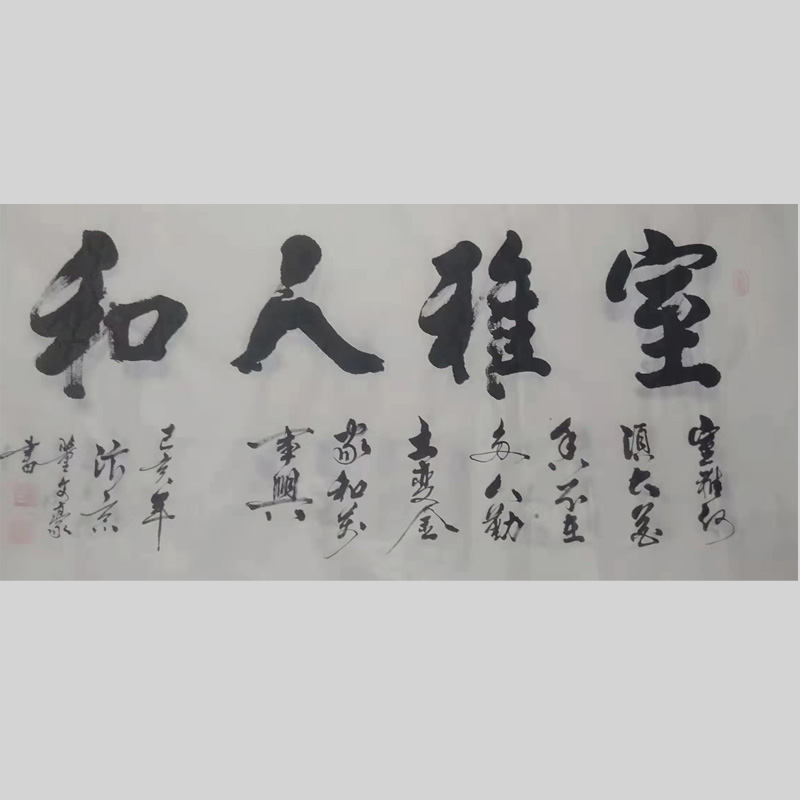 室雅人和
室雅何
须大花
香不在
多人勤
土变金
家和万
事興
己亥年
汴京
文豪
书